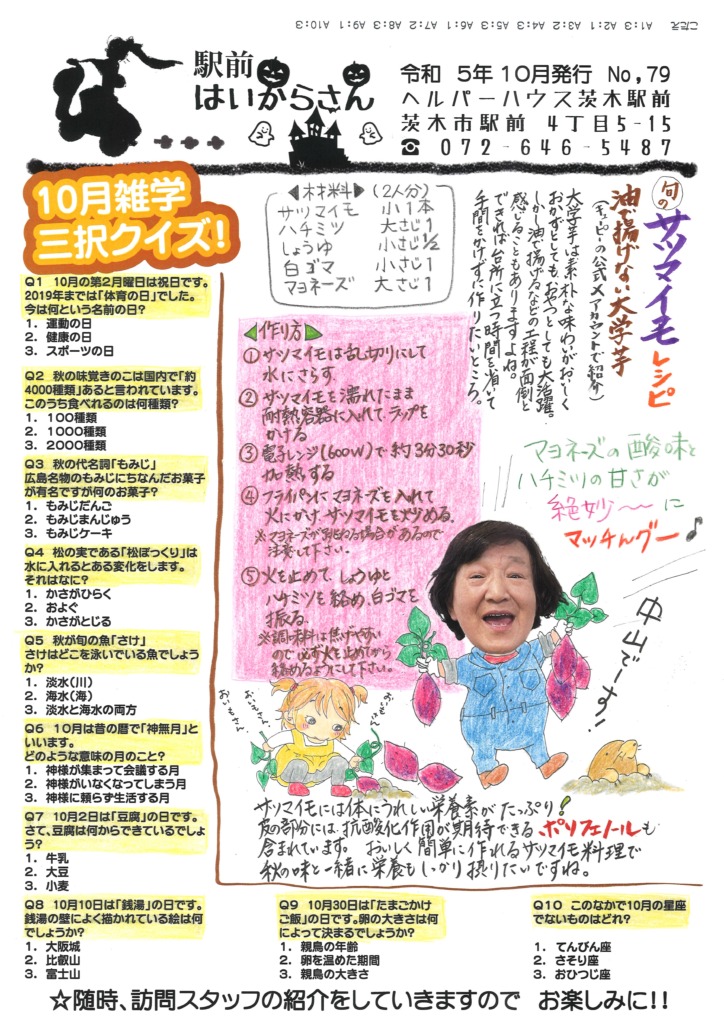 こたえ　A1:3　A2:1　A3:2　A4:3　A5:3　A6:1　A7:2　A8:3　A9:1　A10:3
駅前
はいからさん
令和 5年10月発行 No,79
ヘルパーハウス茨木駅前
茨木市駅前 4丁目5-15
☎ 072-646-5487
10月雑学
三択クイズ!
Q1 10月の第2月曜日は祝日です。
2019年までは「体育の日」でした。
今は何という名前の日?
1. 運動の日
2. 健康の日
3. スポーツの日
Q2 秋の味覚きのこは国内で「約
4000種類」あると言われています。
このうち食べれるのは何種類?
1. 100種類
2. 1000種類
3. 2000種類
Q3 秋の代名詞「もみじ」
広島名物のもみじにちなんだお菓子
が有名ですが何のお菓子?
1. もみじだんご
2. もみじまんじゅう
3. もみじケーキ
Q4 松の実である「松ぼっくり」は
水に入れるとある変化をします。
それはなに?
1. かさがひらく
2. およぐ
3. かさがとじる
Q5 秋が旬の魚「さけ」
さけはどこを泳いでいる魚でしょう
か?
1. 淡水(川)
2. 海水(海)
3. 淡水と海水の両方
Q6 10月は昔の暦で「神無月」と
いいます。
どのような意味の月のこと?
1. 神様が集まって会議する月
2. 神様がいなくなってしまう月
3. 神様に頼らず生活する月
Q7 10月2日は「豆腐」の日です。
さて、豆腐は何からできているでしょ
う?
1. 牛乳
2. 大豆
3. 小麦
Q8 10月10日は「銭湯」の日です。
銭湯の壁によく描かれている絵は何
でしょうか?
1. 大阪城
2. 比叡山
3. 富士山
Q9 10月30日は「たまごかけ
ご飯」の日です。卵の大きさは何
によって決まるでしょうか?
1. 親鳥の年齢
2. 卵を温めた期間
3. 親鳥の大きさ
Q10 このなかで10月の星座
でないものはどれ?
1. てんびん座
2. さそり座
3. おひつじ座
旬のサツマイモレシピ
油で揚げない大学芋
(キューピーの公式Xアカウントで紹介)
大学芋は素朴な味わいがおいしく
おかずとしてもおやつとしても大活躍。
しかし油で揚げるなどの工程が面倒と
感じることもありますよね。
できれば台所に立つ時間を省いて
手間をかけずに作りたいところ。
◀材料▶(2人分)
サツマイモ 小1本
ハチミツ 大さじ1
しょうゆ 小さじ1/2
白ゴマ 小さじ1
マヨネーズ 大さじ1
◀作り方▶
①サツマイモは乱切りにして
水にさらす
②サツマイモを濡れたまま
耐熱容器に入れて、ラップを
かける
③電子レンジ(600W)で約3分30秒
加熱する
④フライパンにマヨネーズを入れて
火にかけサツマイモを炒める.
※マヨネーズが跳ねる場合があるので
注意して下さい.
⑤火を止めて、しょうゆと
ハチミツを絡め、白ゴマを
振る.
※調味料は焦げやすい
ので必ず火を止めてから
絡めるようにして下さい。
マヨネーズの酸味と
ハチミツの甘さが
絶妙〜〜に
マッチんグー♪
中山でーす!
おいもさん
おいもさん、
おいもさん
サツマイモには体にうれしい栄養素がたっぷり!
皮の部分には、抗酸化作用が期待できるポリフェノールも
含まれています。おいしく簡単に作れるサツマイモ料理で
秋の味と一緒に栄養もしっかり摂りたいですね。
☆随時、訪問スタッフの紹介をしていきますので お楽しみに!!